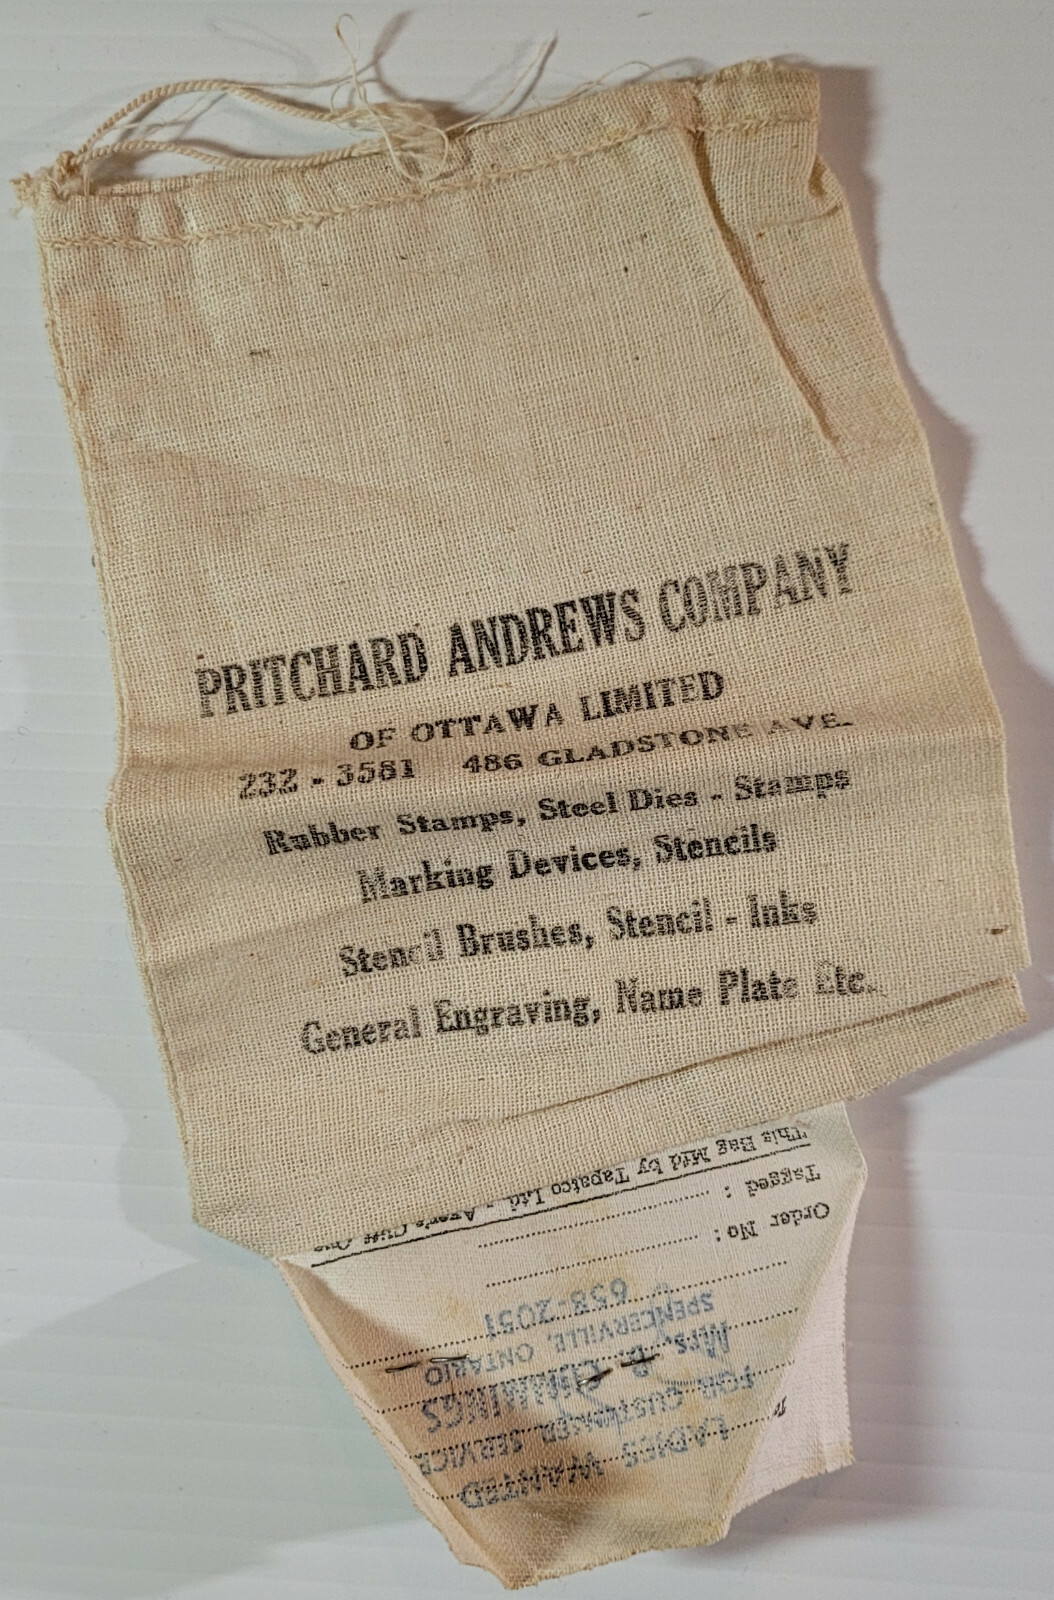 PRITCHARD ANDREWS COMPANY
OF OTTAWA LIMITED
232 - 3581 486 GLADSTONE AVE.
Rubber Stamps, Steel Dies - Stamps
Marking Devices, Stencils
Stencil Brushes, Stencil - Inks
General Engraving, Name Plate Etc.
LADIES WANTED
FOR CUSTOMER SERVICE
Mrs. B. CUMMINGS
SPENCERVILLE, ONTARIO
658-2051
Order No:
Tagged :
This Bag Mfd by Tapatco Ltd - Ayer's Cliff, Que